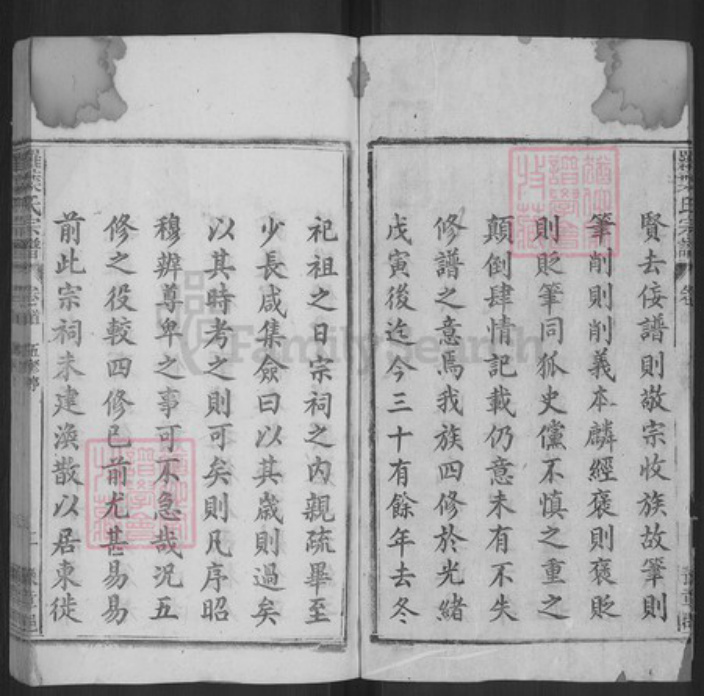 賢去佞譜則敬宗收族故筆則
筆削則削義本麟經褒則褒貶
則貶筆同狐史儻不慎之重之
顛倒肆情記載仍意未有不失
修譜之意焉我族四修於光緒
戊寅後迄今三十有餘年去冬
祀祖之日宗祠之內親疏畢至
少長咸集僉曰以其歲則過矣
以其時考之則可矣則凡序昭
穆辨尊卑之事可不急哉況五
修之役較四修已前尤甚易易
前此宗祠未建渙散以居東徙
氏宗譜
卷首
FamilySearch